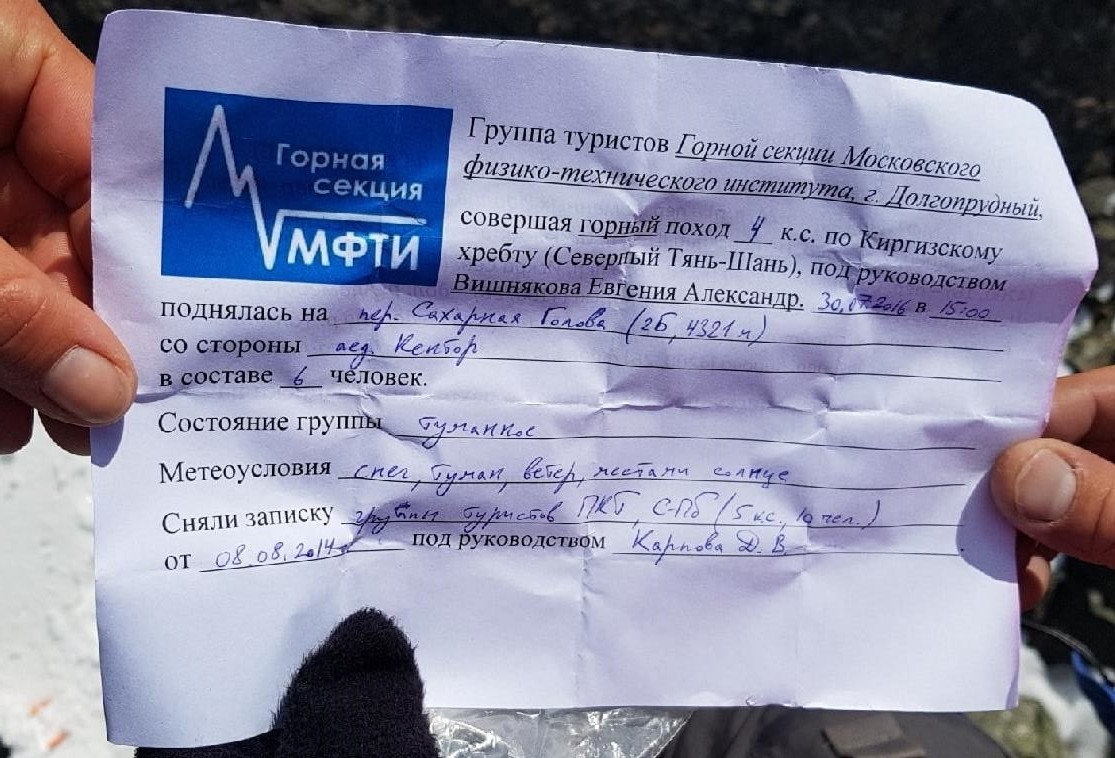 Горная
секция
МФТИ
Группа туристов Горной секции Московского
физико-технического института, г. Долгопрудный,
совершая горный поход 4 к.с. по Киргизскому
хребту (Северный Тянь-Шань), под руководством
Вишнякова Евгения Александр. 30.07.2016 в 15:00
поднялась на пер. Сахарная Голова (2Б, 4321 м)
со стороны лед. Кентор
в составе 6 человек.
Состояние группы туманное
Метеоусловия снег, туман, ветер, местами солнце
Сняли записку группы туристов ПКТ, С-Пб (5 к.с., 10 чел.)
от 08.08.2014 под руководством Карпова Д. В.